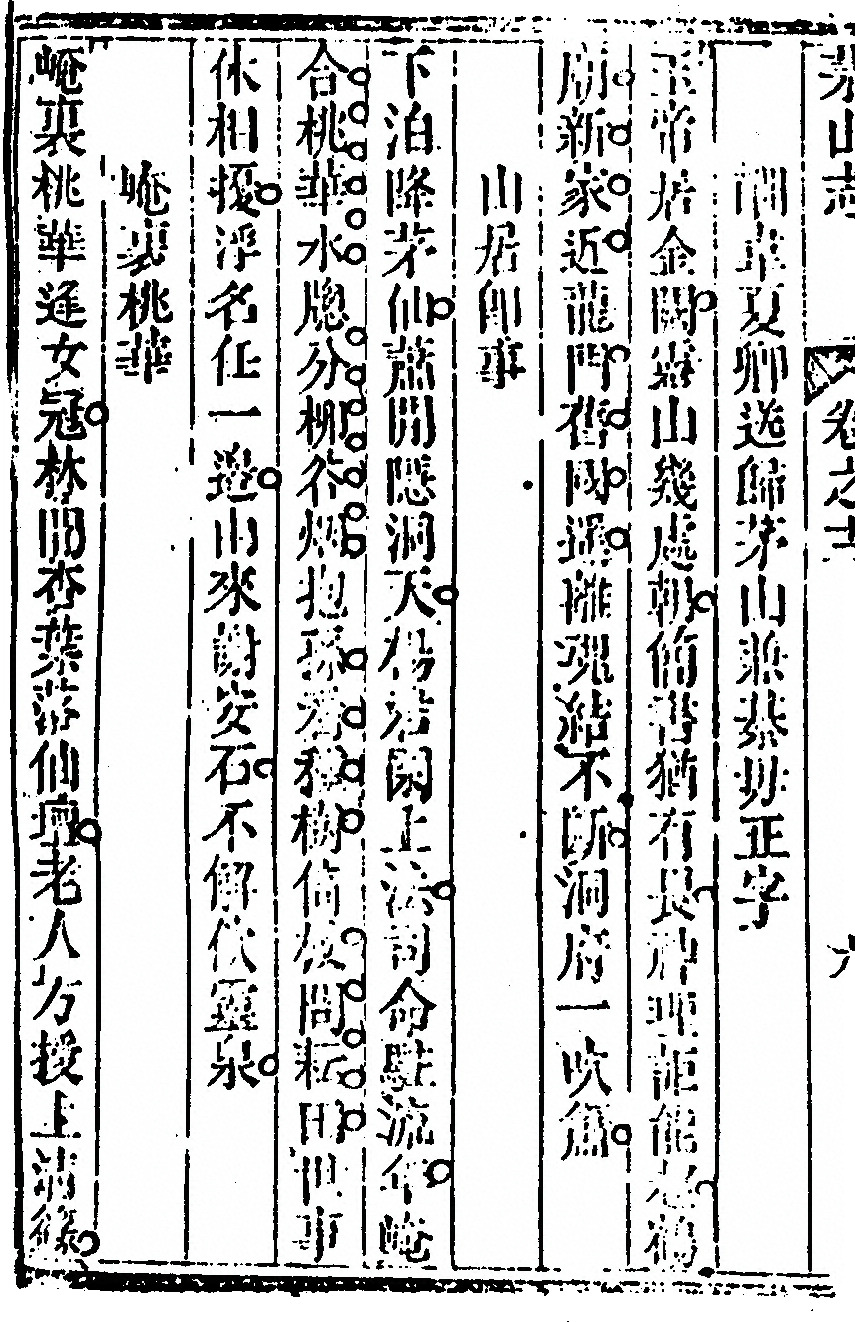 茅山志 卷之十 六
夏卿 歸茅山兼 毋正字
玉帝居金闕 山幾處朝 書猶有 神理詎能 鶴
廟新家近龍門舊國遥離魂結不斷洞府一吹簫
山居即事
下泊降茅仙蕭閒隱洞天楊 閑上法司命駐流年 崦
合桃華水窗分柳谷煙抱孫 種樹倚 問耘田世事
休相擾浮名任一邊由來謝安石不解飲靈泉
崦裏桃華
崦裏桃華逢女冠林間杏葉落仙壇老人方授上清籙